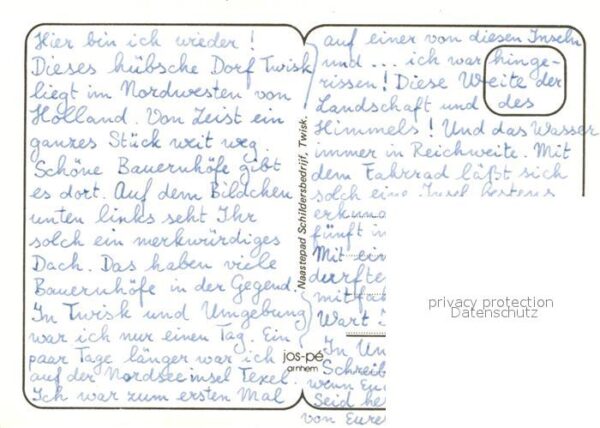 Hier bin ich wieder!
Dieses hübsche Dorf Twisk
liegt im Nordwesten von
Holland. Von Zeist ein
ganzes Stück weit weg.
Schöne Bauernhöfe gibt
es dort. Auf dem Bildchen
unten links seht Ihr
solch ein merkwürdiges
Dach. Das haben viele
Bauernhöfe in der Gegend.
In Twisk und Umgebung
war ich nur einen Tag. Ein
paar Tage länger war ich
auf der Nordseeinsel Texel.
Ich war zum ersten Mal
Naastepad Schildersbedrijf, Twisk.
jos-pé
arnhem
auf einer von diesen Inseln
und ... ich war hinge-
rissen! Diese Weite der
Landschaft und des
Himmels! Und das Wasser
immer in Reichweite. Mit
dem Fahrrad läßt sich
solch eine Insel bestens
erkun
fünft in
Mit ein
durfte
mitfa
Wart
In Un
Schreib
wenn Eu
Seid he
von Eure
privacy protection
Datenschutz